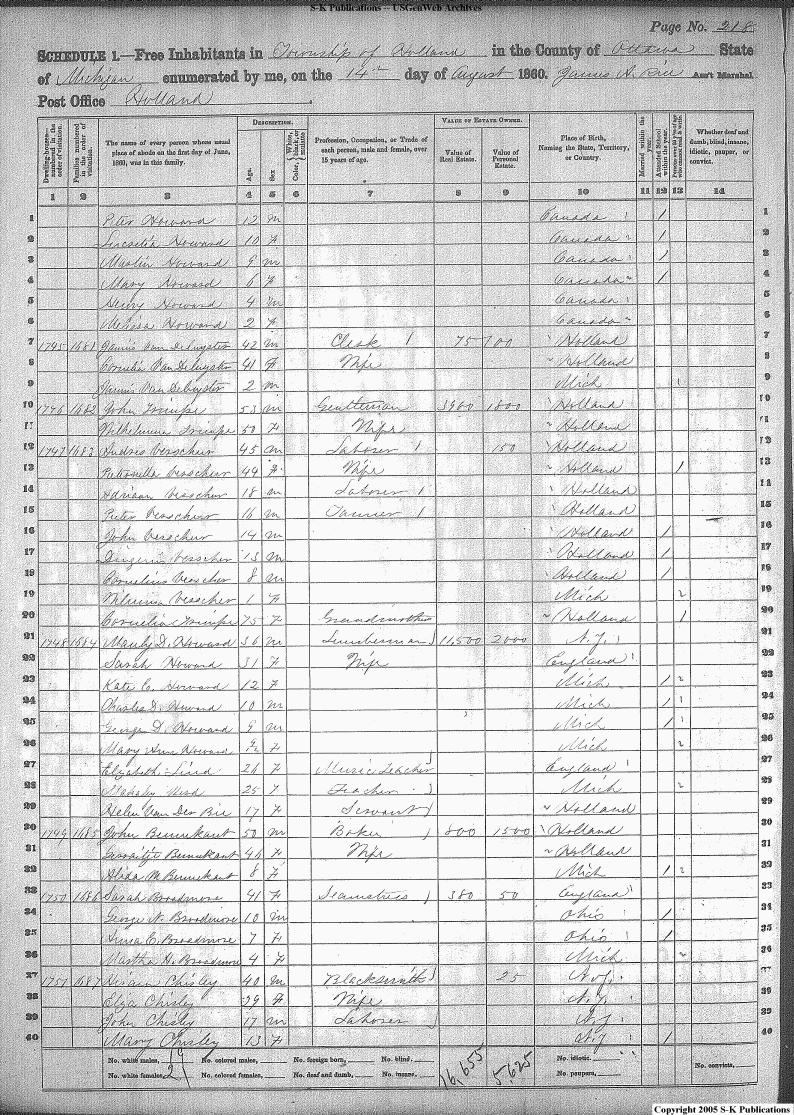 S-K Publications -- USGenWeb Archives
Page No. 218
SCHEDULE 1.—Free Inhabitants in Township of Holland in the County of Ottawa State
of Michigan enumerated by me, on the 14th day of August 1860. James A. Ass't Marshal.
Post Office Holland.
Dwelling-houses—numbered in the order of visitation.
Families numbered in the order of visitation.
The name of every person whose usual place of abode on the first day of June, 1860, was in this family.
DESCRIPTION.
Age.
Sex
Color, White, black, or mulatto
Profession, Occupation, or Trade of each person, male and female, over 15 years of age.
VALUE OF ESTATE OWNED.
Value of Real Estate.
Value of Personal Estate.
Place of Birth, Naming the State, Territory, or Country.
Married within the year.
Attended School within the year.
Whether deaf and dumb, blind, insane, idiotic, pauper, or convict.
1 2 3 4 5 6 7 8 9 10 11 12 13 14
1 Peter Howard 12 m Canada / 1
2 Howard 10 F Canada / 2
3 Martin Howard 9 m Canada / 3
4 Mary Howard 6 F Canada / 4
5 Henry Howard 4 m Canada 5
6 Melissa Howard 2 F Canada 6
7 1745 1681 42 m Clerk 75 100 Holland 7
8 Cornelia 41 F Wife Holland 8
9 2 m Mich 9
10 1746 1682 John Trimpe 53 m Gentleman 1800 Holland 10
11 Wilhelmina Trimpe 50 F Wife Holland 11
12 1747 1683 Andries Verscheur 45 m Laborer 150 Holland 12
13 Petronella Verscheur 44 F Wife Holland / 13
14 Adrian Verscheur 18 m Laborer Holland 14
15 Peter Verscheur 16 m Tanner Holland 15
16 John Verscheur 14 m Holland / 16
17 Verscheur 13 m Holland / 17
18 Cornelius Verscheur 8 m Holland / 18
19 Verscheur 1 F Mich 19
20 Cornelia Trimpe 75 F Grandmother Holland / 20
21 1748 1684 Manly D. Howard 36 m Lumberman 11,500 2000 N.Y. 21
22 Sarah Howard 31 F Wife England 22
23 Kate C. Howard 12 F Mich / 23
24 Charles D. Howard 10 m Mich / 24
25 George D. Howard 9 m Mich / 25
26 Mary Ann Howard F Mich 26
27 Elizabeth 26 F Music Teacher England 27
28 25 F Teacher Mich 28
29 Helen Van Der 17 F Servant Holland 29
30 1749 1685 John Bennekant 50 m Baker 800 1500 Holland 30
31 Bennekant 46 F Wife Holland 31
32 Alida M Bennekant 8 F Mich / 32
33 1750 1686 Sarah Broadmore 41 F Seamstress 380 50 England 33
34 George N. Broadmore 10 m Ohio / 34
35 Anna E. Broadmore 7 F Ohio / 35
36 Martha H. Broadmore 4 F Mich 36
37 1751 1687 Hiram Chisley 40 m Blacksmith 25 N.Y. 37
38 Eliza Chisley 39 F Wife N.Y. 38
39 John Chisley 17 m Laborer N.Y. 39
40 Mary Chisley 13 F N.Y / 40
No. white males, 19 No. colored males, No. foreign born, No. blind, 16,655 5,625 No. idiotic, No. convicts,
No. white females, 21 No. colored females, No. deaf and dumb, No. insane, No. paupers,
Copyright 2005 S-K Publications